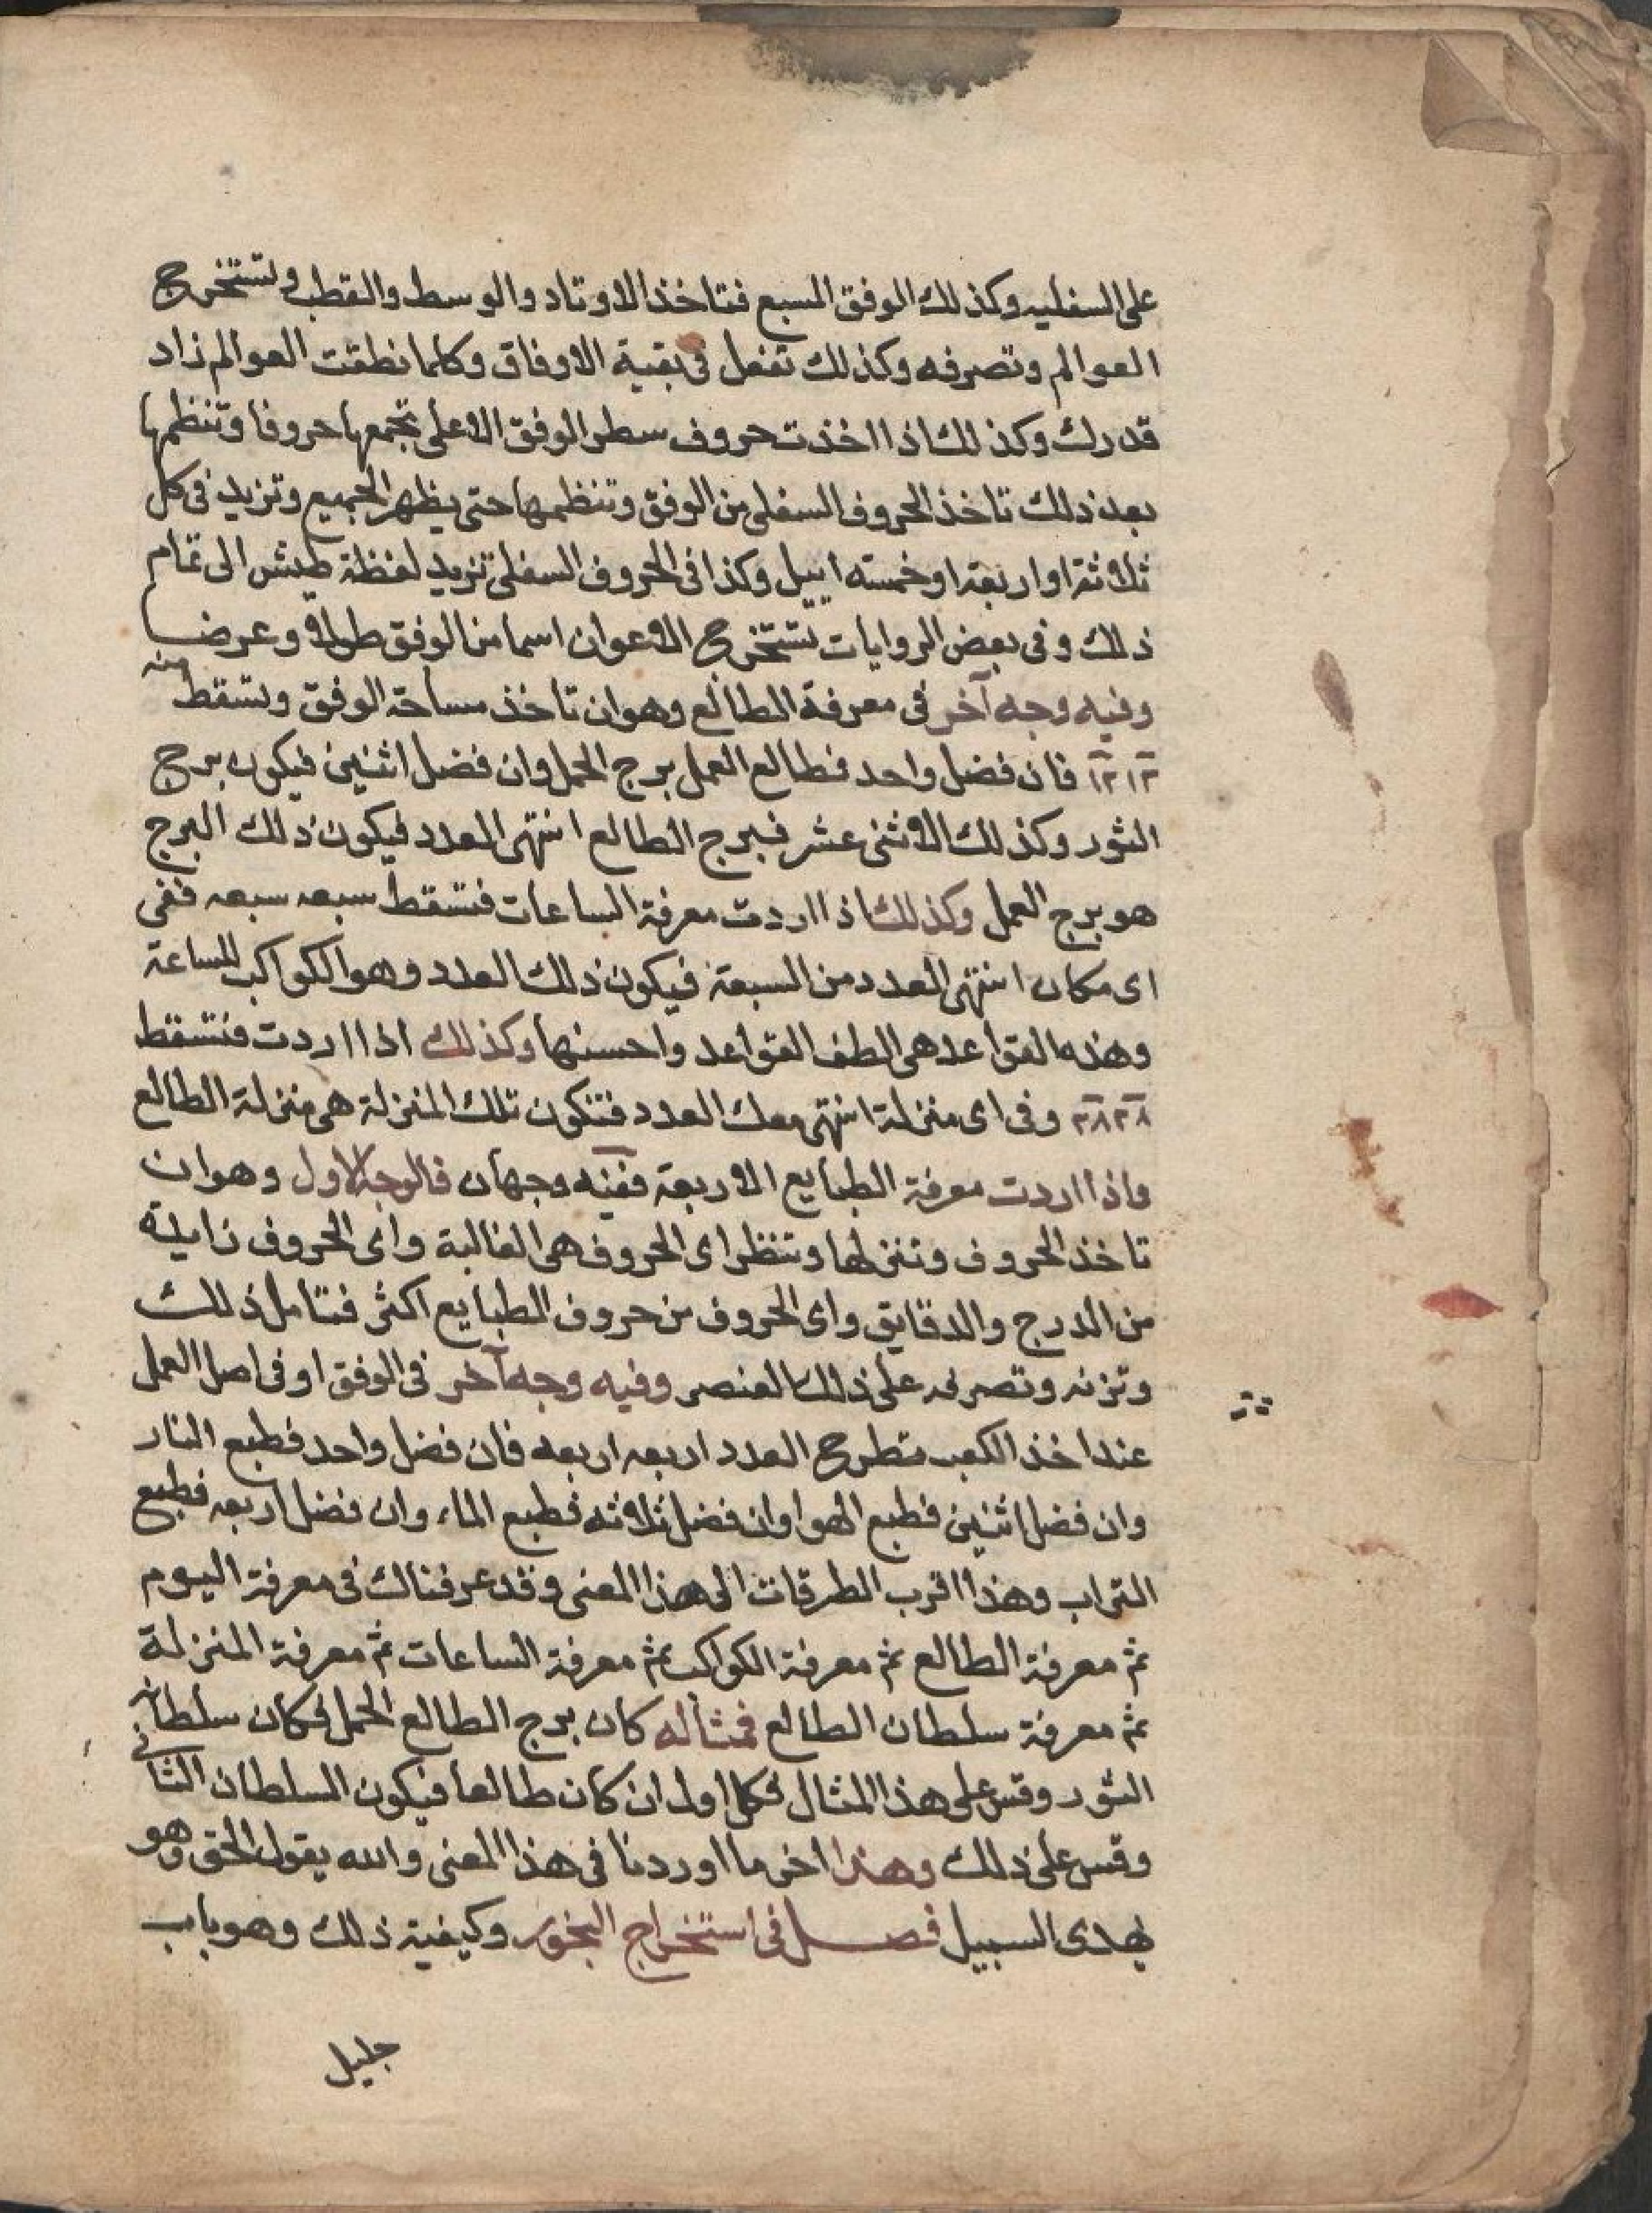 على السفليه وكذلك الوفق المسبع فتاخذ الاوتاد والوسط والقطب وتستخرج
العوالم وتصرفه وكذلك تفعل فى بقية الاوفاق وكلما نطقت العوالم زاد
قدرك وكذلك اذا اخذت حروف سطر الوفق الاعلى تجمعها حروفا وتنظمها
بعد ذلك تاخذ الحروف السفلى من الوفق وتنظمها حتى يظهر الجميع وتزيد فى كل
ثلاثة او اربعة او خمسته اييل وكذا فى الحروف السفلى تزيد لفظة طيش الى تمام
ذلك وفى بعض الروايات تستخرج الاعوان اسما من الوفق طولا وعرضا
وفيه وجه آخر فى معرفة الطالع وهو ان تاخذ مساحة الوفق وتسقط منه
١٢ ١٢ فان فضل واحد فطالع العمل برج الحمل وان فضل اثنين فيكون برج
الثور وكذلك الاثنى عشر فبرج الطالع انتهى العدد فيكون ذلك البرج
هو برج العمل وكذلك اذا اردت معرفة الساعات فتسقط سبعه سبعه ففى
اى مكان انتهى العدد من السبعة فيكون ذلك العدد وهو الكواكب للساعة
وهذه القواعد هى الطف القواعد واحسنها وكذلك اذا اردت فتسقط
٢٨ ٢٨ وفى اى منزلة انتهى معك العدد فتكون تلك المنزلة هى منزلة الطالع
واذا اردت معرفة الطبايع الاربعة ففيه وجهان فالوجه الاول وهو ان
تاخذ الحروف وتنزلها وتنظر اى الحروف هى الغالبة واى الحروف زايلة
من الدرج والدقايق واى الحروف من حروف الطبايع اكثر فتامل ذلك
وتزنه وتصرفه على ذلك العنصر وفيه وجه آخر فى الوفق او فى اصل العمل
عند اخذ الكعب تطرح العدد اربعه اربعه فان فضل واحد فطبع النار
وان فضل اثنين فطبع الهوا وان فضل ثلاثه فطبع الماء وان فضل اربعه فطبع
التراب وهذا اقرب الطرقات الى هذا المعنى وقد عرفناك فى معرفة اليوم
ثم معرفة الطالع ثم معرفة الكواكب ثم معرفة الساعات ثم معرفة المنزلة
ثم معرفة سلطان الطالع فمثاله كان برج الطالع الحمل فكان سلطانه
الثور وقس على هذا المثال فكل اول ان كان طالعا فيكون السلطان الثانى
وقس على ذلك وهذا اخر ما اوردنا فى هذا المعنى والله يقول الحق وهو
يهدى السبيل فصل فى استخراج البخور وكيفية ذلك وهو باب
جليل